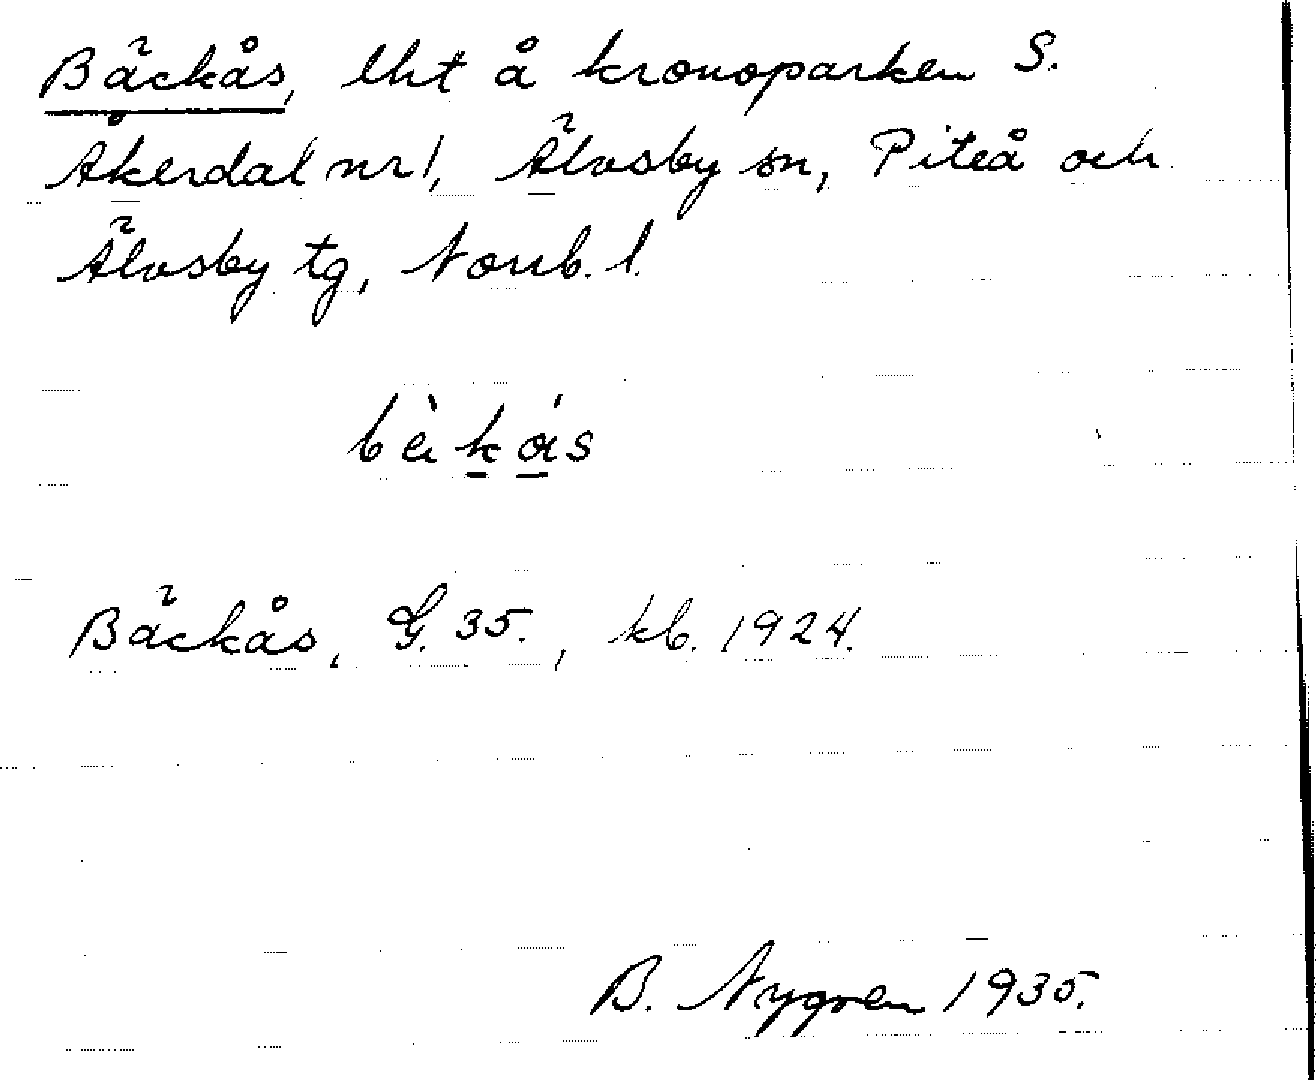 Bäckås, lht å kronoparken S.
Åkerdal nr 1, Älvsby sn, Piteå och
Älvsby tg, Norrb. l.
bèkás
Bäckås, G. 35., kb. 1924.
B. Nygren 1935.